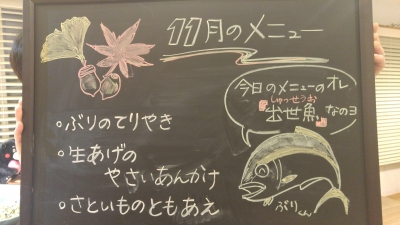 11月のメニュー
今日のメニューのオレ
しゅっせうお
出世魚
なのヨ
・ぶりのてりやき
・生あげの
やさいあんかけ
・さといものともあえ
ぶりくん